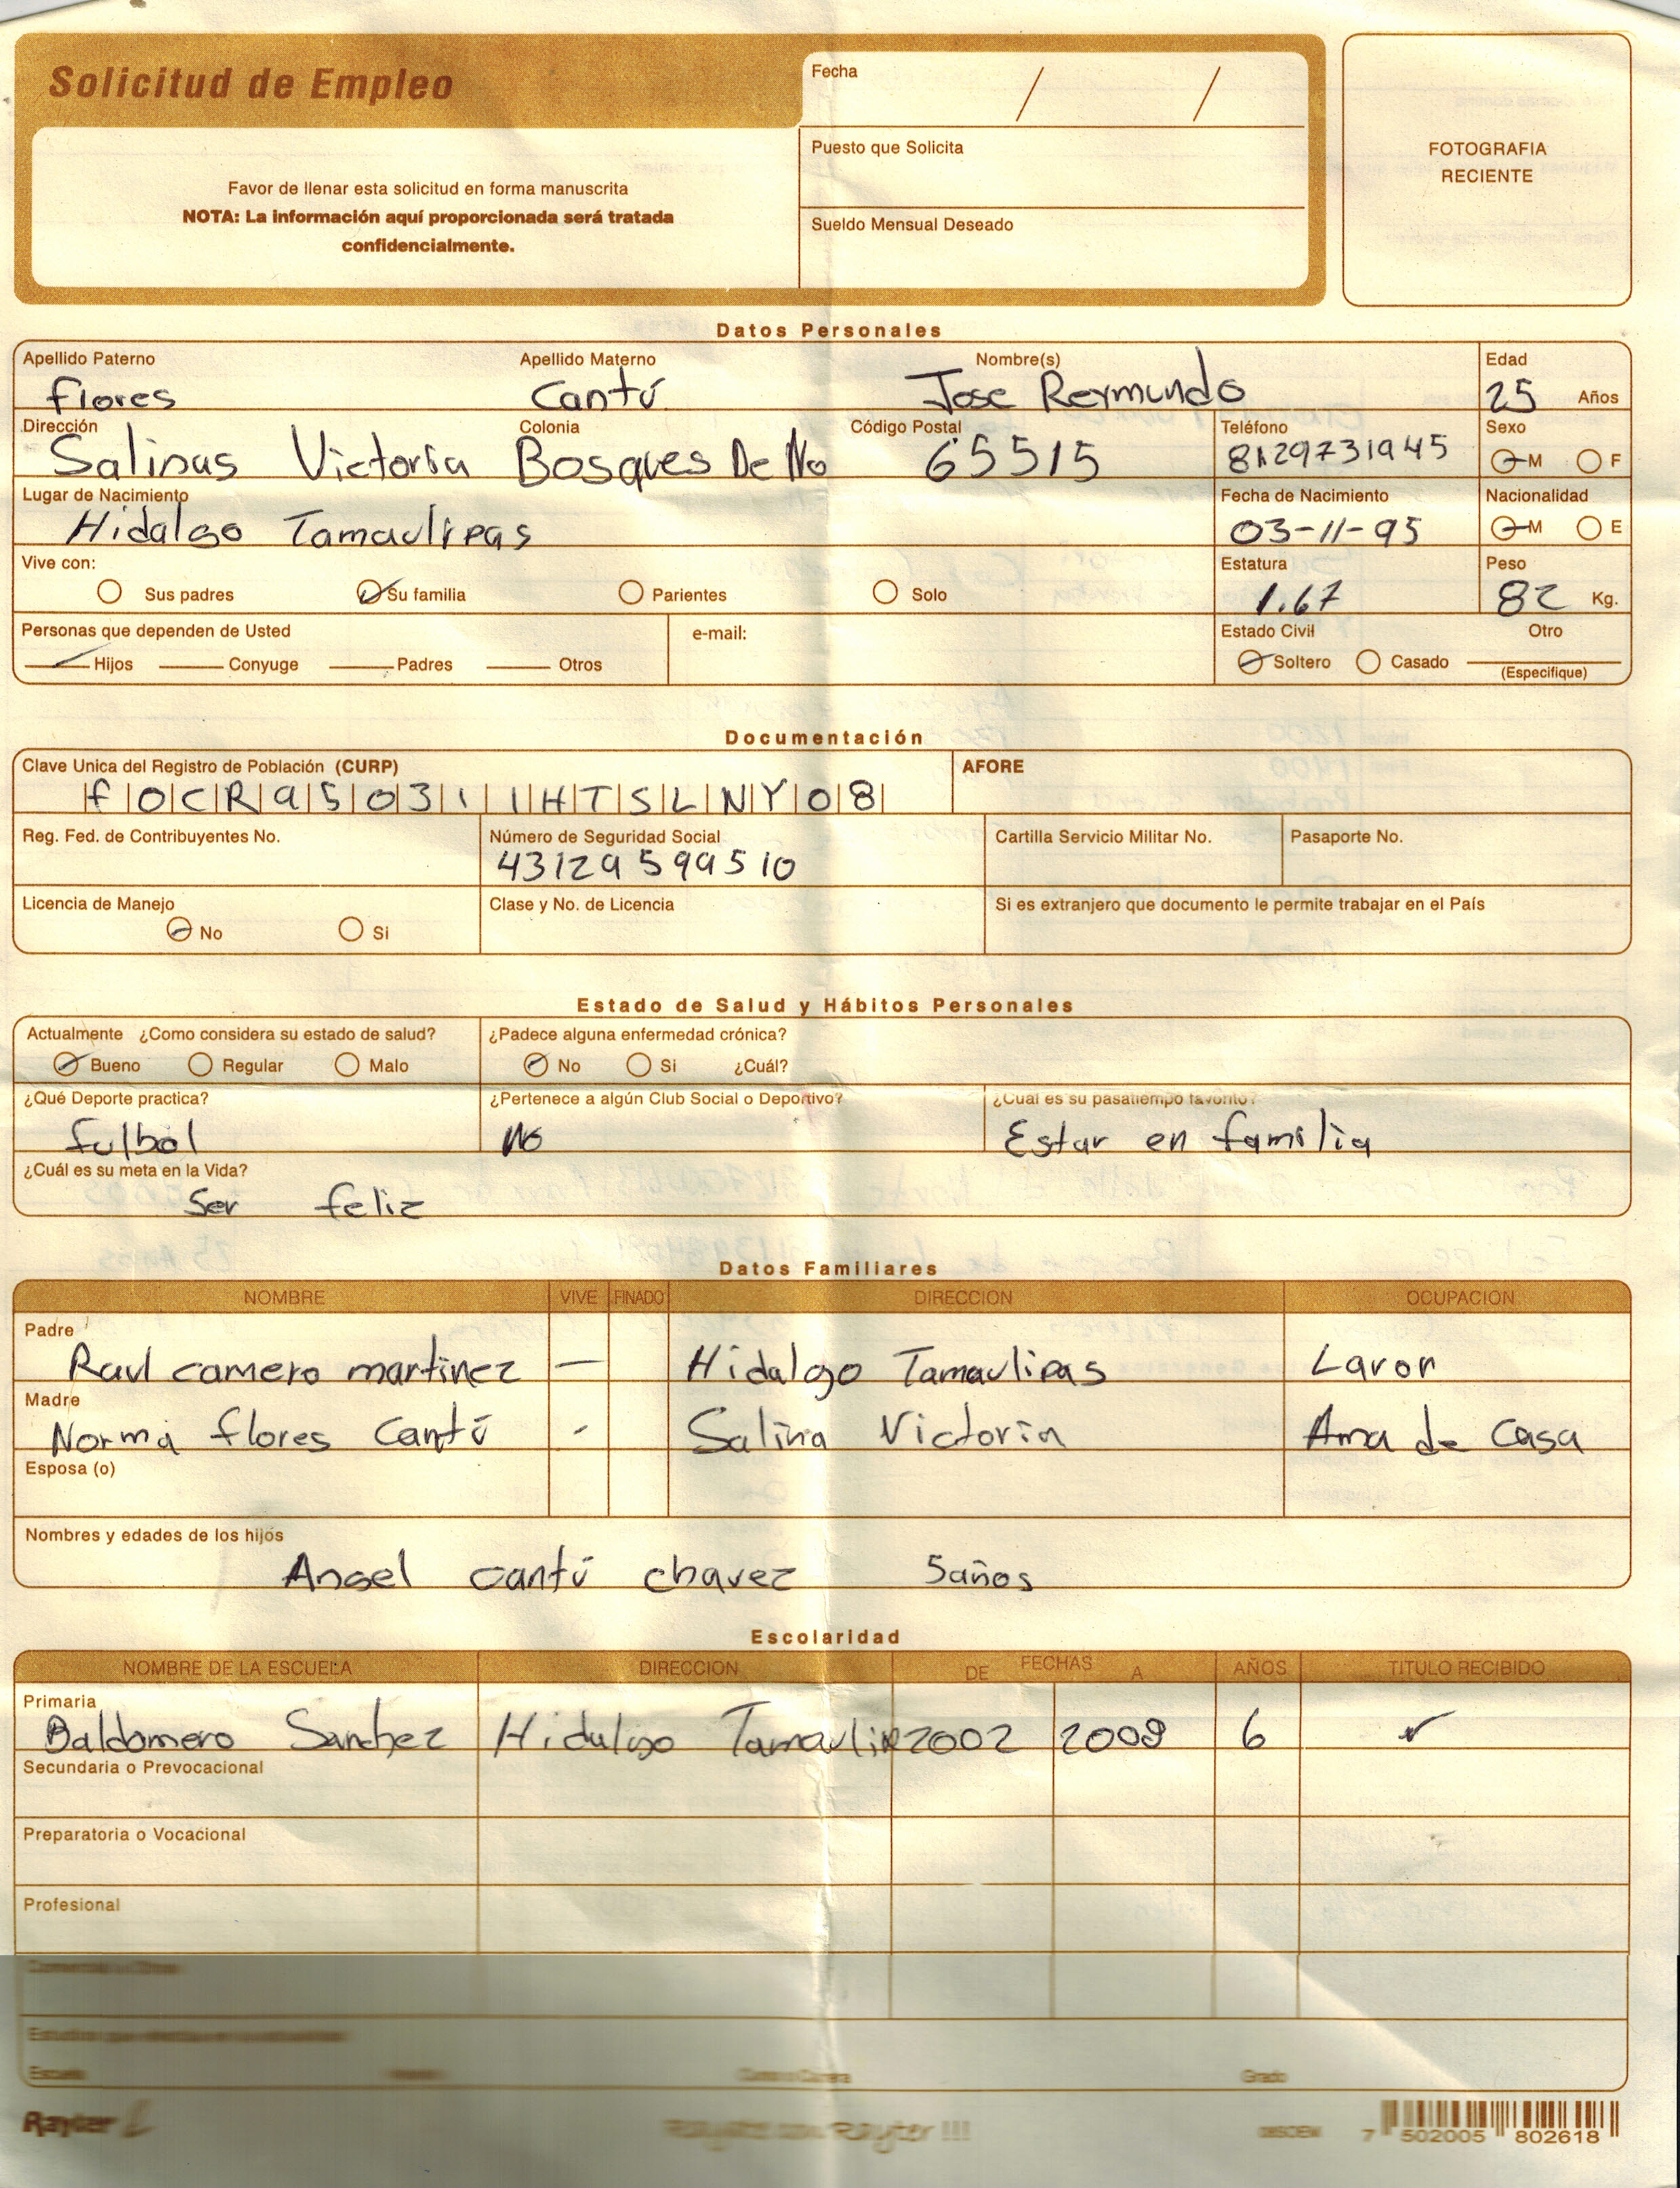 Solicitud de Empleo
Favor de llenar esta solicitud en forma manuscrita
NOTA: La información aquí proporcionada será tratada
confidencialmente.
Fecha / /
Puesto que Solicita
Sueldo Mensual Deseado
FOTOGRAFIA
RECIENTE
Datos Personales
Apellido Paterno Apellido Materno Nombre(s) Edad
flores Cantú Jose Reymundo 25 Años
Dirección Colonia Código Postal Teléfono Sexo
Salinas Victoria Bosques De No 65515 8129731945 M F
Lugar de Nacimiento Fecha de Nacimiento Nacionalidad
Hidalgo Tamaulipas 03-11-95 M E
Vive con: Estatura Peso
Sus padres Su familia Parientes Solo 1.67 82 Kg.
Personas que dependen de Usted e-mail: Estado Civil Otro
Hijos Conyuge Padres Otros Soltero Casado
(Especifique)
Documentación
Clave Unica del Registro de Población (CURP) AFORE
FOCR950311HTSLNY08
Reg. Fed. de Contribuyentes No. Número de Seguridad Social Cartilla Servicio Militar No. Pasaporte No.
43129599510
Licencia de Manejo Clase y No. de Licencia Si es extranjero que documento le permite trabajar en el País
No Si
Estado de Salud y Hábitos Personales
Actualmente ¿Como considera su estado de salud? ¿Padece alguna enfermedad crónica?
Bueno Regular Malo No Si ¿Cuál?
¿Qué Deporte practica? ¿Pertenece a algún Club Social o Deportivo? ¿Cuál es su pasatiempo favorito?
fulbol No Estar en familia
¿Cuál es su meta en la Vida?
Ser feliz
Datos Familiares
NOMBRE VIVE FINADO DIRECCION OCUPACION
Padre
Raul camero martinez Hidalgo Tamaulipas Lavor
Madre
Norma flores Cantú Salina Victoria Ama de Casa
Esposa (o)
Nombres y edades de los hijos
Angel cantú chavez 5años
Escolaridad
NOMBRE DE LA ESCUELA DIRECCION DE FECHAS A AÑOS TITULO RECIBIDO
Primaria
Baldomero Sanchez Hidalgo Tamaulip 2002 2008 6 ✓
Secundaria o Prevocacional
Preparatoria o Vocacional
Profesional
Escuela Grado
Rayter
7 502005 802618